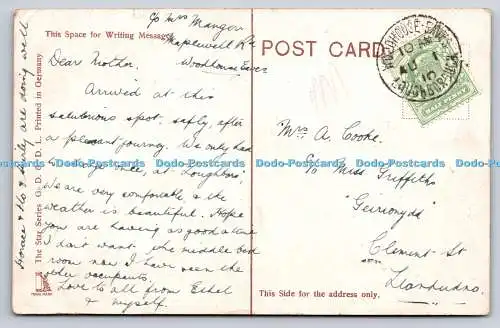 c/o Mrs Mangor
Maplewell Rd
Woodhouse Eaves
This Space for Writing Messages
POST CARD
Dear Mother,
Arrived at this
salubrious spot, safely, after
a pleasant journey. We only had
to change once, at Loughboro'.
We are very comfortable, & the
weather is beautiful. Hope
you are having as good a time
I don't want the middle bed
room now I have seen the
other occupants,
Love to all from Ethel
& myself.
Horace & Flo & family are doing well
The Star Series G. D. & D. L. Printed in Germany
TRADE MARK
Mrs A. Cooke.
c/o Miss Griffiths
"Geirionydd"
Clement St
Llandudno.
This Side for the address only.
WOODHOUSE-EAVES
LOUGHBOROUGH
AU 1
10
HALF PENNY
Do-Postcards.com